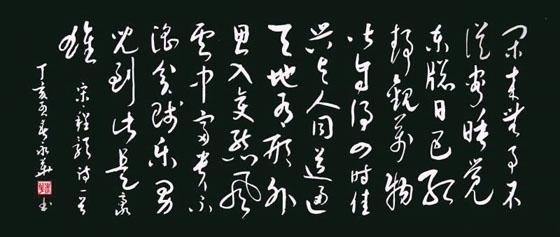 闲来无事不
从容睡觉
东牕日已红
静观万物
皆自得四时佳
兴与人同道通
天地有形外
思入变态风
云中富贵不
淫贫贱乐男
儿到此是豪
雄
宋程颢诗一首
丁亥春永华书